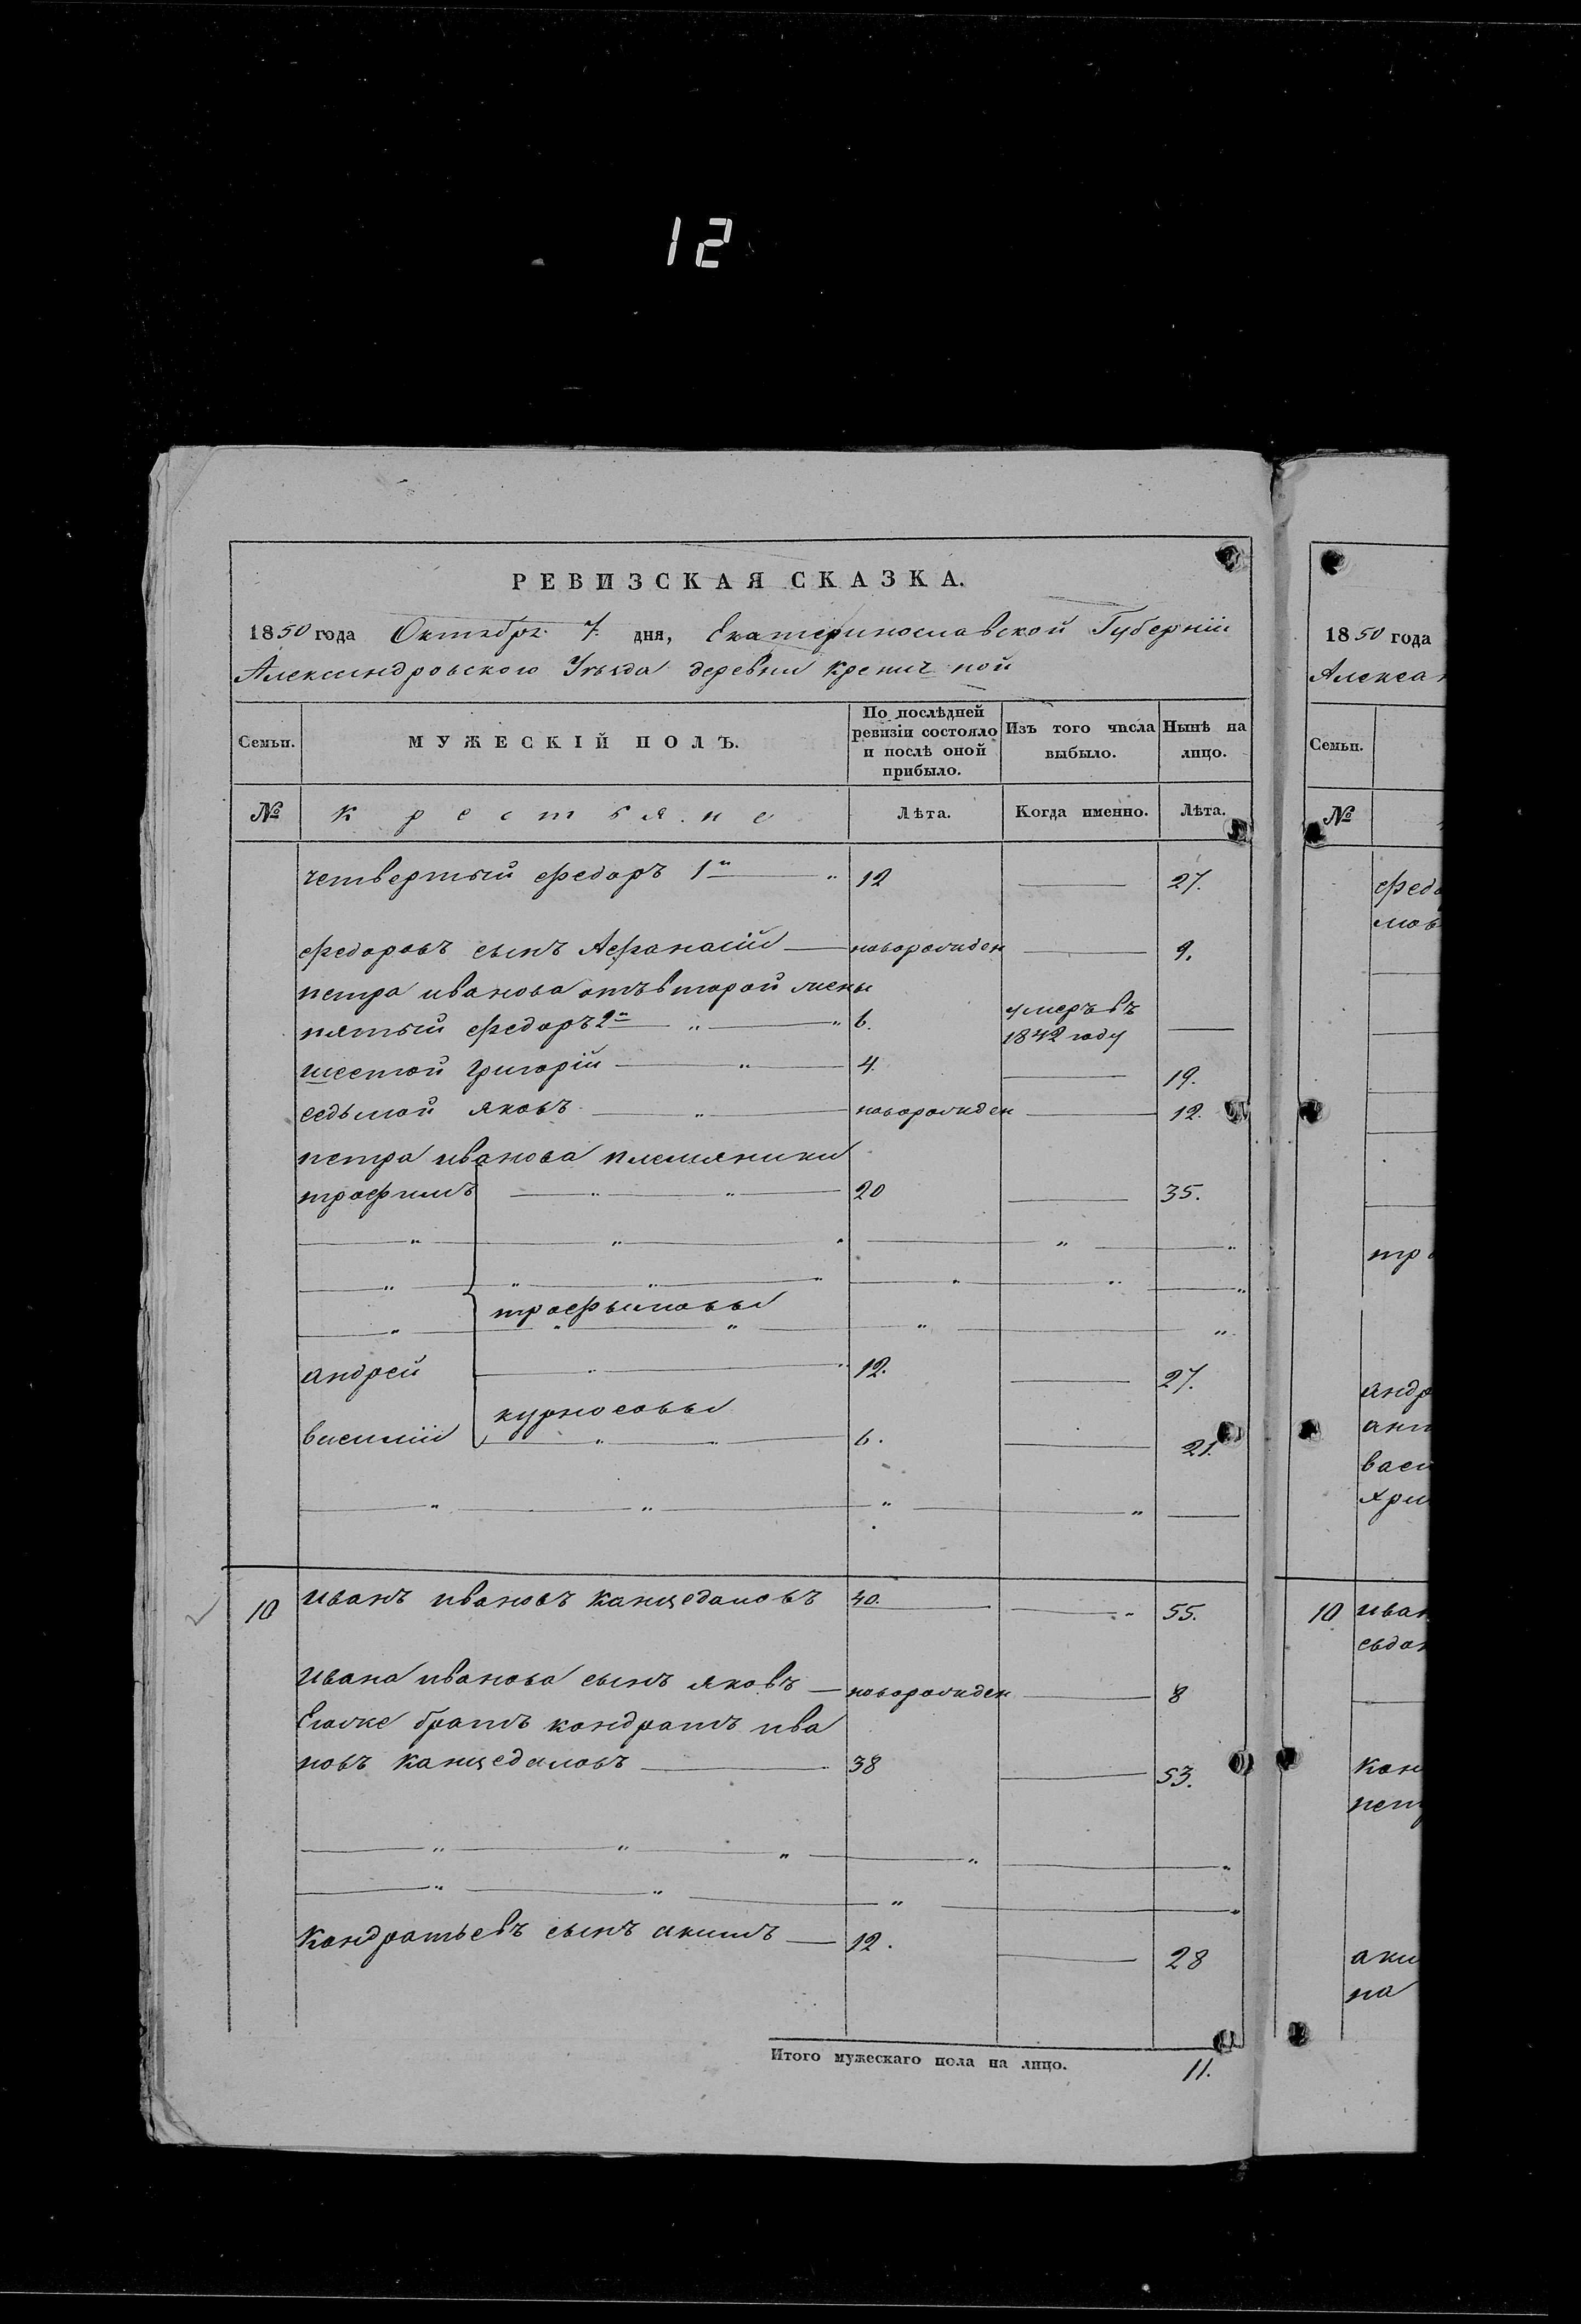 12
РЕВИЗСКАЯ СКАЗКА.
1850 года Октября 7. дня, Екатеринославской Губерніи
Александровского Уѣзда деревни Кренич ной
Семьи.
МУЖЕСКІЙ ПОЛЪ.
По послѣдней ревизіи состояло и послѣ оной прибыло.
Изъ того числа выбыло.
Нынѣ на лицо.
№ Крестьяне Лѣта. Когда именно. Лѣта.
четвертый федоръ 1й 12 27.
федоровъ сынъ Афанасій новорожден 9.
петра иванова отъ второй жены
пятый федоръ 2й 6. умеръ въ 1842 году
шестой григорій 4. 19.
седьмой яковъ новорожден 12.
петра иванова племяники
трофимъ 20 35.
трофымовы
андрей 12. 27.
курносовы
василій 6. 21.
10 иванъ ивановъ канцедаловъ 40. 55.
Ивана иванова сынъ яковъ новорожден 8
Егоже братъ кондратъ ива
новъ канцедаловъ 38 53.
Кондратьевъ сынъ акимъ 12. 28
Итого мужескаго пола на лицо. 11.
1850 года
Алексан
Семьи.
№
федо
мов
тро
андр
ант
васи
хри
10 иван
евдо
кон
пет
аки
на